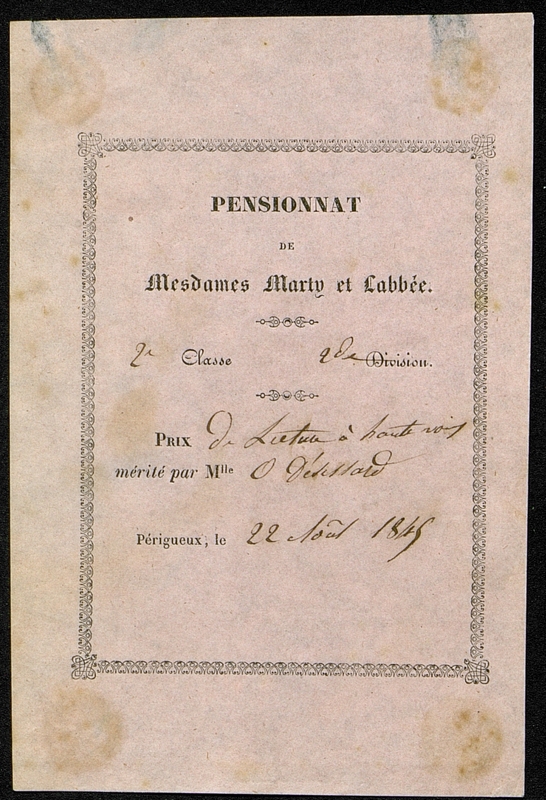 PENSIONNAT
DE
Mesdames Marty et Labbée.
2e Classe 2de Division.
PRIX de Lecture à haute voix
mérité par Mlle O
Périgueux, le 22 Août 1845